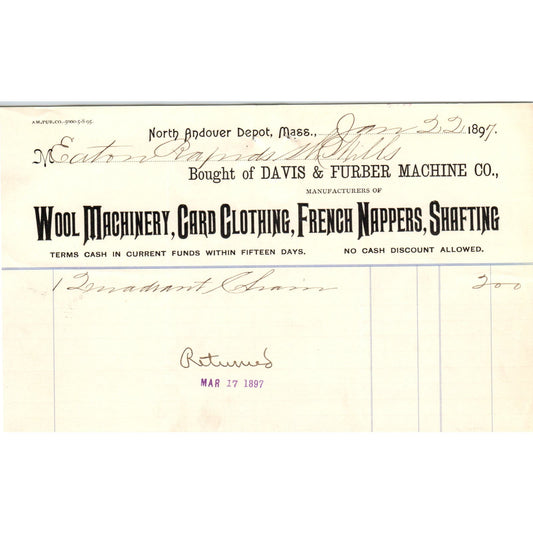 AM.PUB.CO.-5000-5-8-95.
North Andover Depot, Mass., Jan 22 1897.
M Eaton Rapids W Mills
Bought of DAVIS & FURBER MACHINE CO.,
MANUFACTURERS OF
WOOL MACHINERY, CARD CLOTHING, FRENCH NAPPERS, SHAFTING
TERMS CASH IN CURRENT FUNDS WITHIN FIFTEEN DAYS. NO CASH DISCOUNT ALLOWED.
1 Quadrant Chain 200
Returned
MAR 17 1897